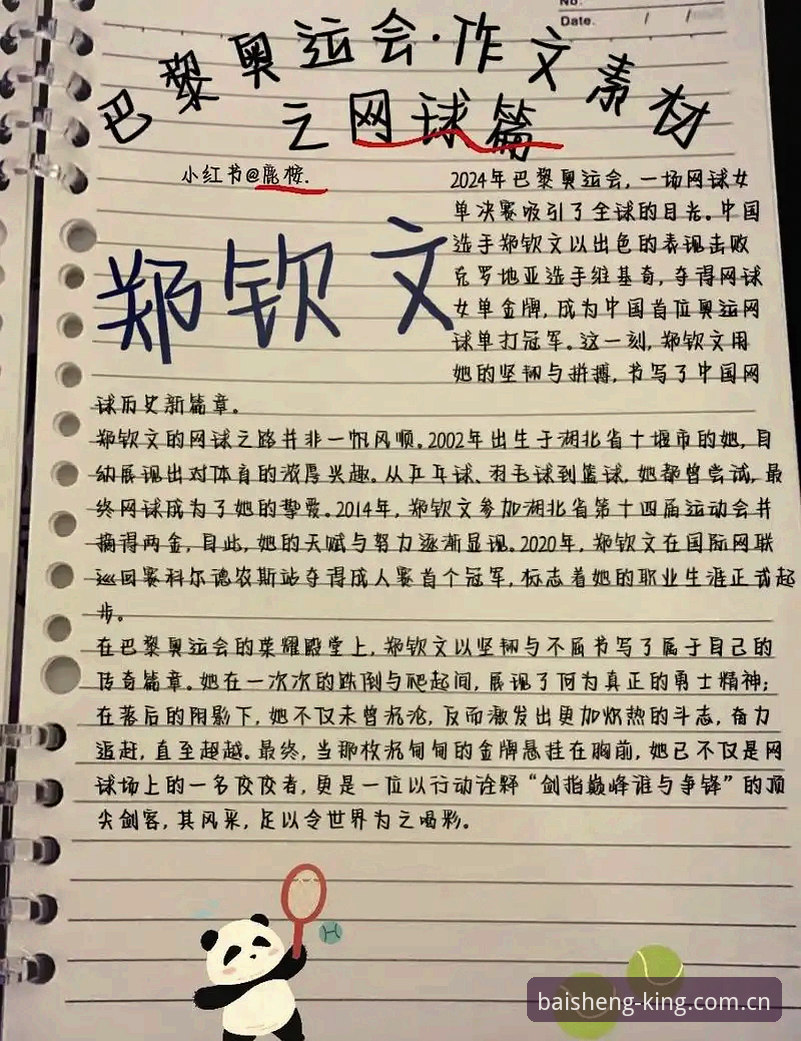 No.
Date.
巴黎奥运会·作文素材
之网球篇
小红书@鹿桉.
郑钦文
2024年巴黎奥运会，一场网球女
单决赛吸引了全球的目光。中国
选手郑钦文以出色的表现击败
克罗地亚选手维基奇，夺得网球
女单金牌，成为中国首位奥运网
球单打冠军。这一刻，郑钦文用
她的坚韧与拼搏，书写了中国网
球历史新篇章。
郑钦文的网球之路并非一帆风顺。2002年出生于湖北省十堰市的她，自
幼展现出对体育的浓厚兴趣。从乒乓球、羽毛球到篮球，她都曾尝试，最
终网球成为了她的挚爱。2014年，郑钦文参加湖北省第十四届运动会并
摘得两金，自此，她的天赋与努力逐渐显现。2020年，郑钦文在国际网联
巡回赛科尔德农斯站夺得成人赛首个冠军，标志着她的职业生涯正式起
步。
在巴黎奥运会的荣耀殿堂上，郑钦文以坚韧与不屈书写了属于自己的
传奇篇章。她在一次次的跌倒与爬起间，展现了何为真正的勇士精神；
在落后的阴影下，她不仅未曾沉沦，反而激发出更加炽热的斗志，奋力
追赶，直至超越。最终，当那枚沉甸甸的金牌悬挂在胸前，她已不仅是网
球场上的一名佼佼者，更是一位以行动诠释“剑指巅峰谁与争锋”的顶
尖剑客，其风采，足以令世界为之喝彩。
baisheng-king.com.cn